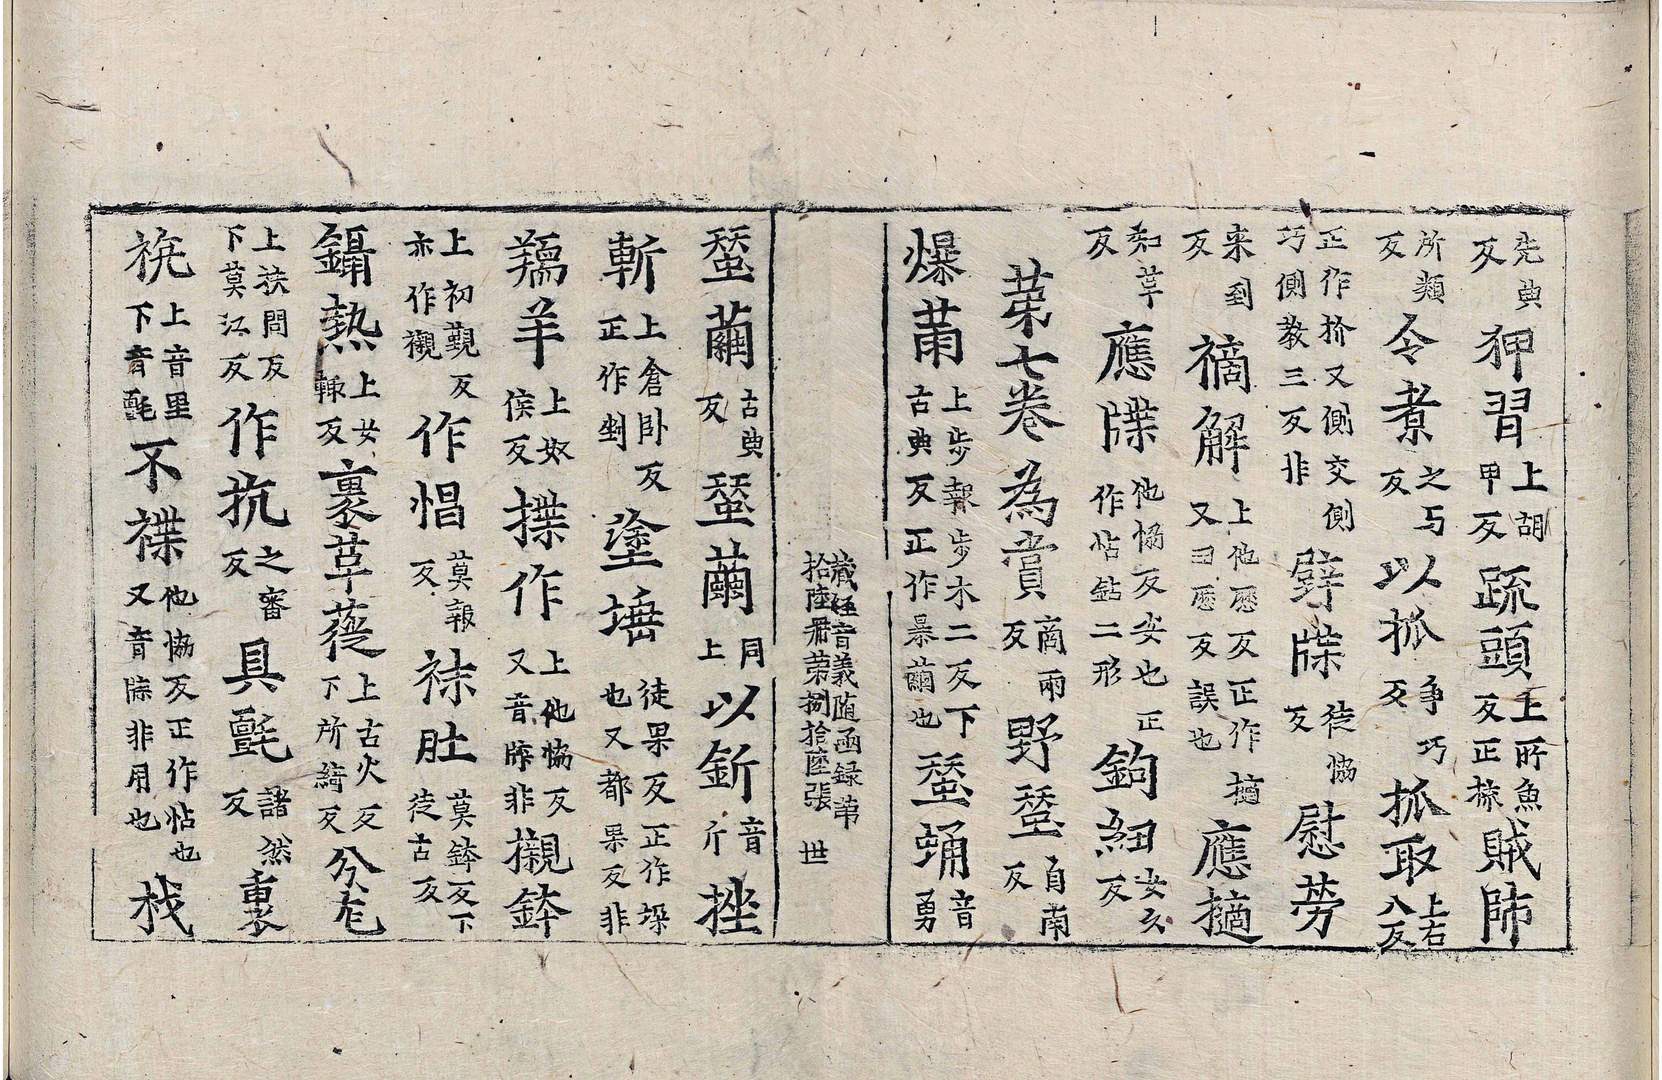 先典反狎習上胡甲反䟽頭上所魚反正梳賊帥
所類反令煮之与反以抓争巧反抓取上右八反
正作抓又側交側巧側教三反非擗牒徒協反慰劳
来到反擿解上他歷反正作擿又曰歷反誤也應擿
知革反應牒他恊反安也正作帖鉆二形鉤紐女久反
苐七卷為賞商兩反野蝅自南反
爆莆上步報步木二反下古典反正作暴繭也蝅蛹音勇
藏經音義随函録苐拾陸册苐捌拾陸張 世
蝅繭古典反蝅繭同上以釿音斤挫
斬上倉卧反正作剉塗埵徒果反正作垛也又都果反非
羺羊上奴侯反揲作上他恊反又音牒非襯鉢
上初覲反亦作襯作㡌莫報反袜肚莫鉢反下徒古反
鑷熱上女輒反裹草蓰上古火反下所綺反分尨
上扶問反下莫江反作抗之審反具氈諸然反裏
㲠上音里下音氈不褋他恊反正作帖也又音牒非用也栈